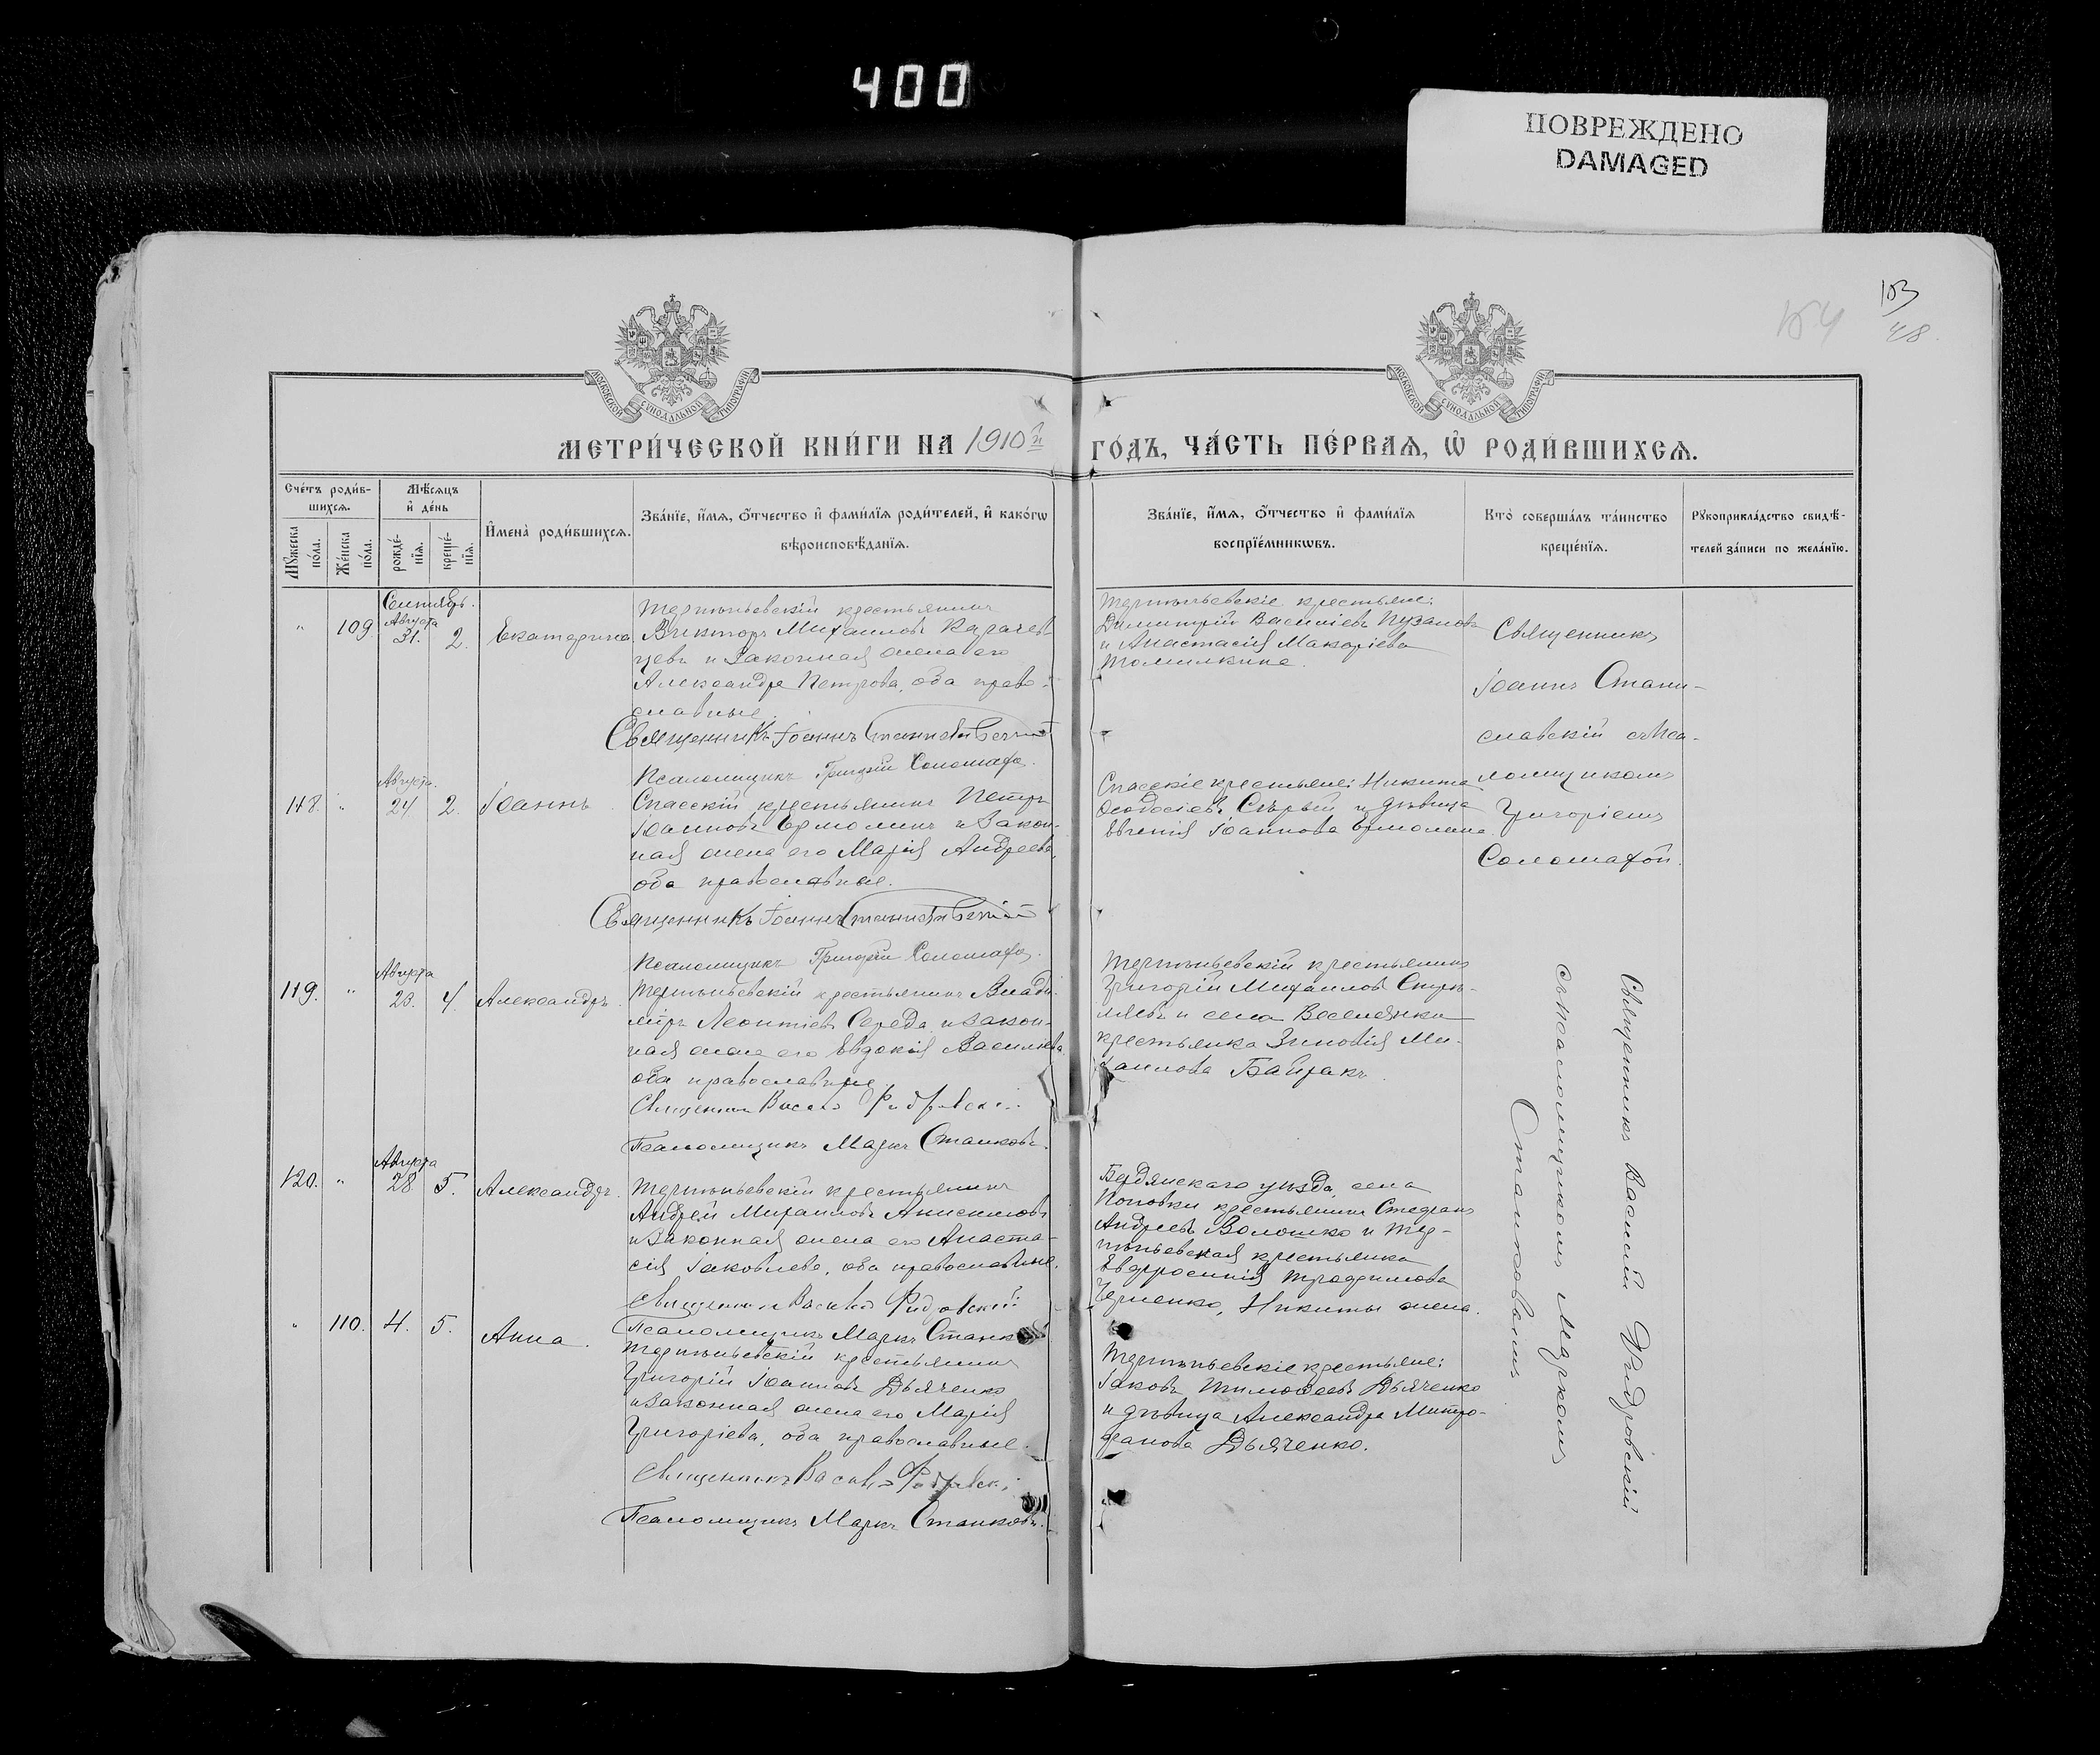 400
ПОВРЕЖДЕНО
DAMAGED
103
48
МОСКОВСКОЙ СѴНОДАЛЬНОЙ ТИПОГРАФІИ
МОСКОВСКОЙ СѴНОДАЛЬНОЙ ТИПОГРАФІИ
МЕТРИ́ЧЕСКОЙ КНИ́ГИ НА 1910й ГО́ДЪ, ЧА́СТЬ ПЕ́РВАѦ, Ѡ҃ РОДИ́ВШИХСѦ.
Сче́тъ роди́в-
шихсѧ.
Мѣ́сѧцъ
и҆ де́нь
Мꙋ́жеска
по́ла.
Же́нска
по́ла.
рожде́-
нїѧ.
креще́-
нїѧ.
И҆мена̀ роди́вшихсѧ.
Зва́нїе, и҆́мѧ, ѻ҆́тчество и҆ фами́лїѧ роди́телей, и҆ како́гѡ
вѣроисповѣ́данїѧ.
Зва́нїе, и҆́мѧ, ѻ҆́тчество и҆ фами́лїѧ
воспрїе́мникѡвъ.
Кто̀ соверша́лъ та́инство
креще́нїѧ.
Рꙋкоприкла́дство свидѣ́-
телей за́писи по жела́нїю.
Сентябрь.
" 109 Августа 31. 2. Екатерина
Терпѣньевскій крестьянинъ
Викторъ Михаиловъ Карачев-
цевъ и законная жена его
Александра Петрова, оба право-
славные.
Священникъ Іоаннъ Станиславскій
Псаломщикъ Григорій Соломаха.
Терпѣньевскіе крестьяне:
Димитрій Василіевъ Пузановъ
и Анастасія Макаріева
Томилкина.
Священникъ
Іоаннъ Стани-
славскій съ Пса-
ломщикомъ
Григоріемъ
Соломахой.
118. " Августа 24 2. Іоаннъ
Спасскій крестьянинъ Петръ
Іоанновъ Ермолинъ и закон-
ная жена его Марія Андреева,
оба православные.
Священникъ Іоаннъ Станиславскій
Псаломщикъ Григорій Соломаха.
Спасскіе крестьяне: Никита
Ѳеодосіевъ Сѣрый и дѣвица
Евгенія Іоаннова Ермолина.
119. " Августа 20. 4. Александръ.
Терпѣньевскій крестьянинъ Влади-
міръ Леонтіевъ Середа и закон-
ная жена его Евдокія Василіева
оба православные.
Священникъ Василій Фидровскій
Псаломщикъ Маркъ Станковъ.
Терпѣньевскій крестьянинъ
Григорій Михаиловъ
и села Веселянки
крестьянка Зиновія Ми-
хаилова Байракъ.
Священникъ Василій Фидровскій
съ Псаломщикомъ Маркомъ
Станковымъ
120. " Августа 28 5. Александръ.
Терпѣньевскій крестьянинъ
Андрей Михаиловъ Анисимовъ
и законная жена его Анаста-
сія Іаковлева, оба православные.
Священникъ Василій Фидровскій
Псаломщикъ Маркъ Станковъ
Бердянскаго уѣзда, села
Поповки крестьянинъ Стефанъ
Андреевъ Волошко и Тер-
пѣньевская крестьянка
Евфросинія Трофимова
Черненко, Никиты жена.
" 110. 4. 5. Анна.
Терпѣньевскій крестьянинъ
Григорій Іоанновъ Дьяченко
и законная жена его Марія
Григоріева, оба православные.
Священникъ Василій Фидровскій
Псаломщикъ Маркъ Станковъ.
Терпѣньевскіе крестьяне:
Іаковъ Тимоѳеевъ Дьяченко
и дѣвица Александра Митро-
фанова Дьяченко.